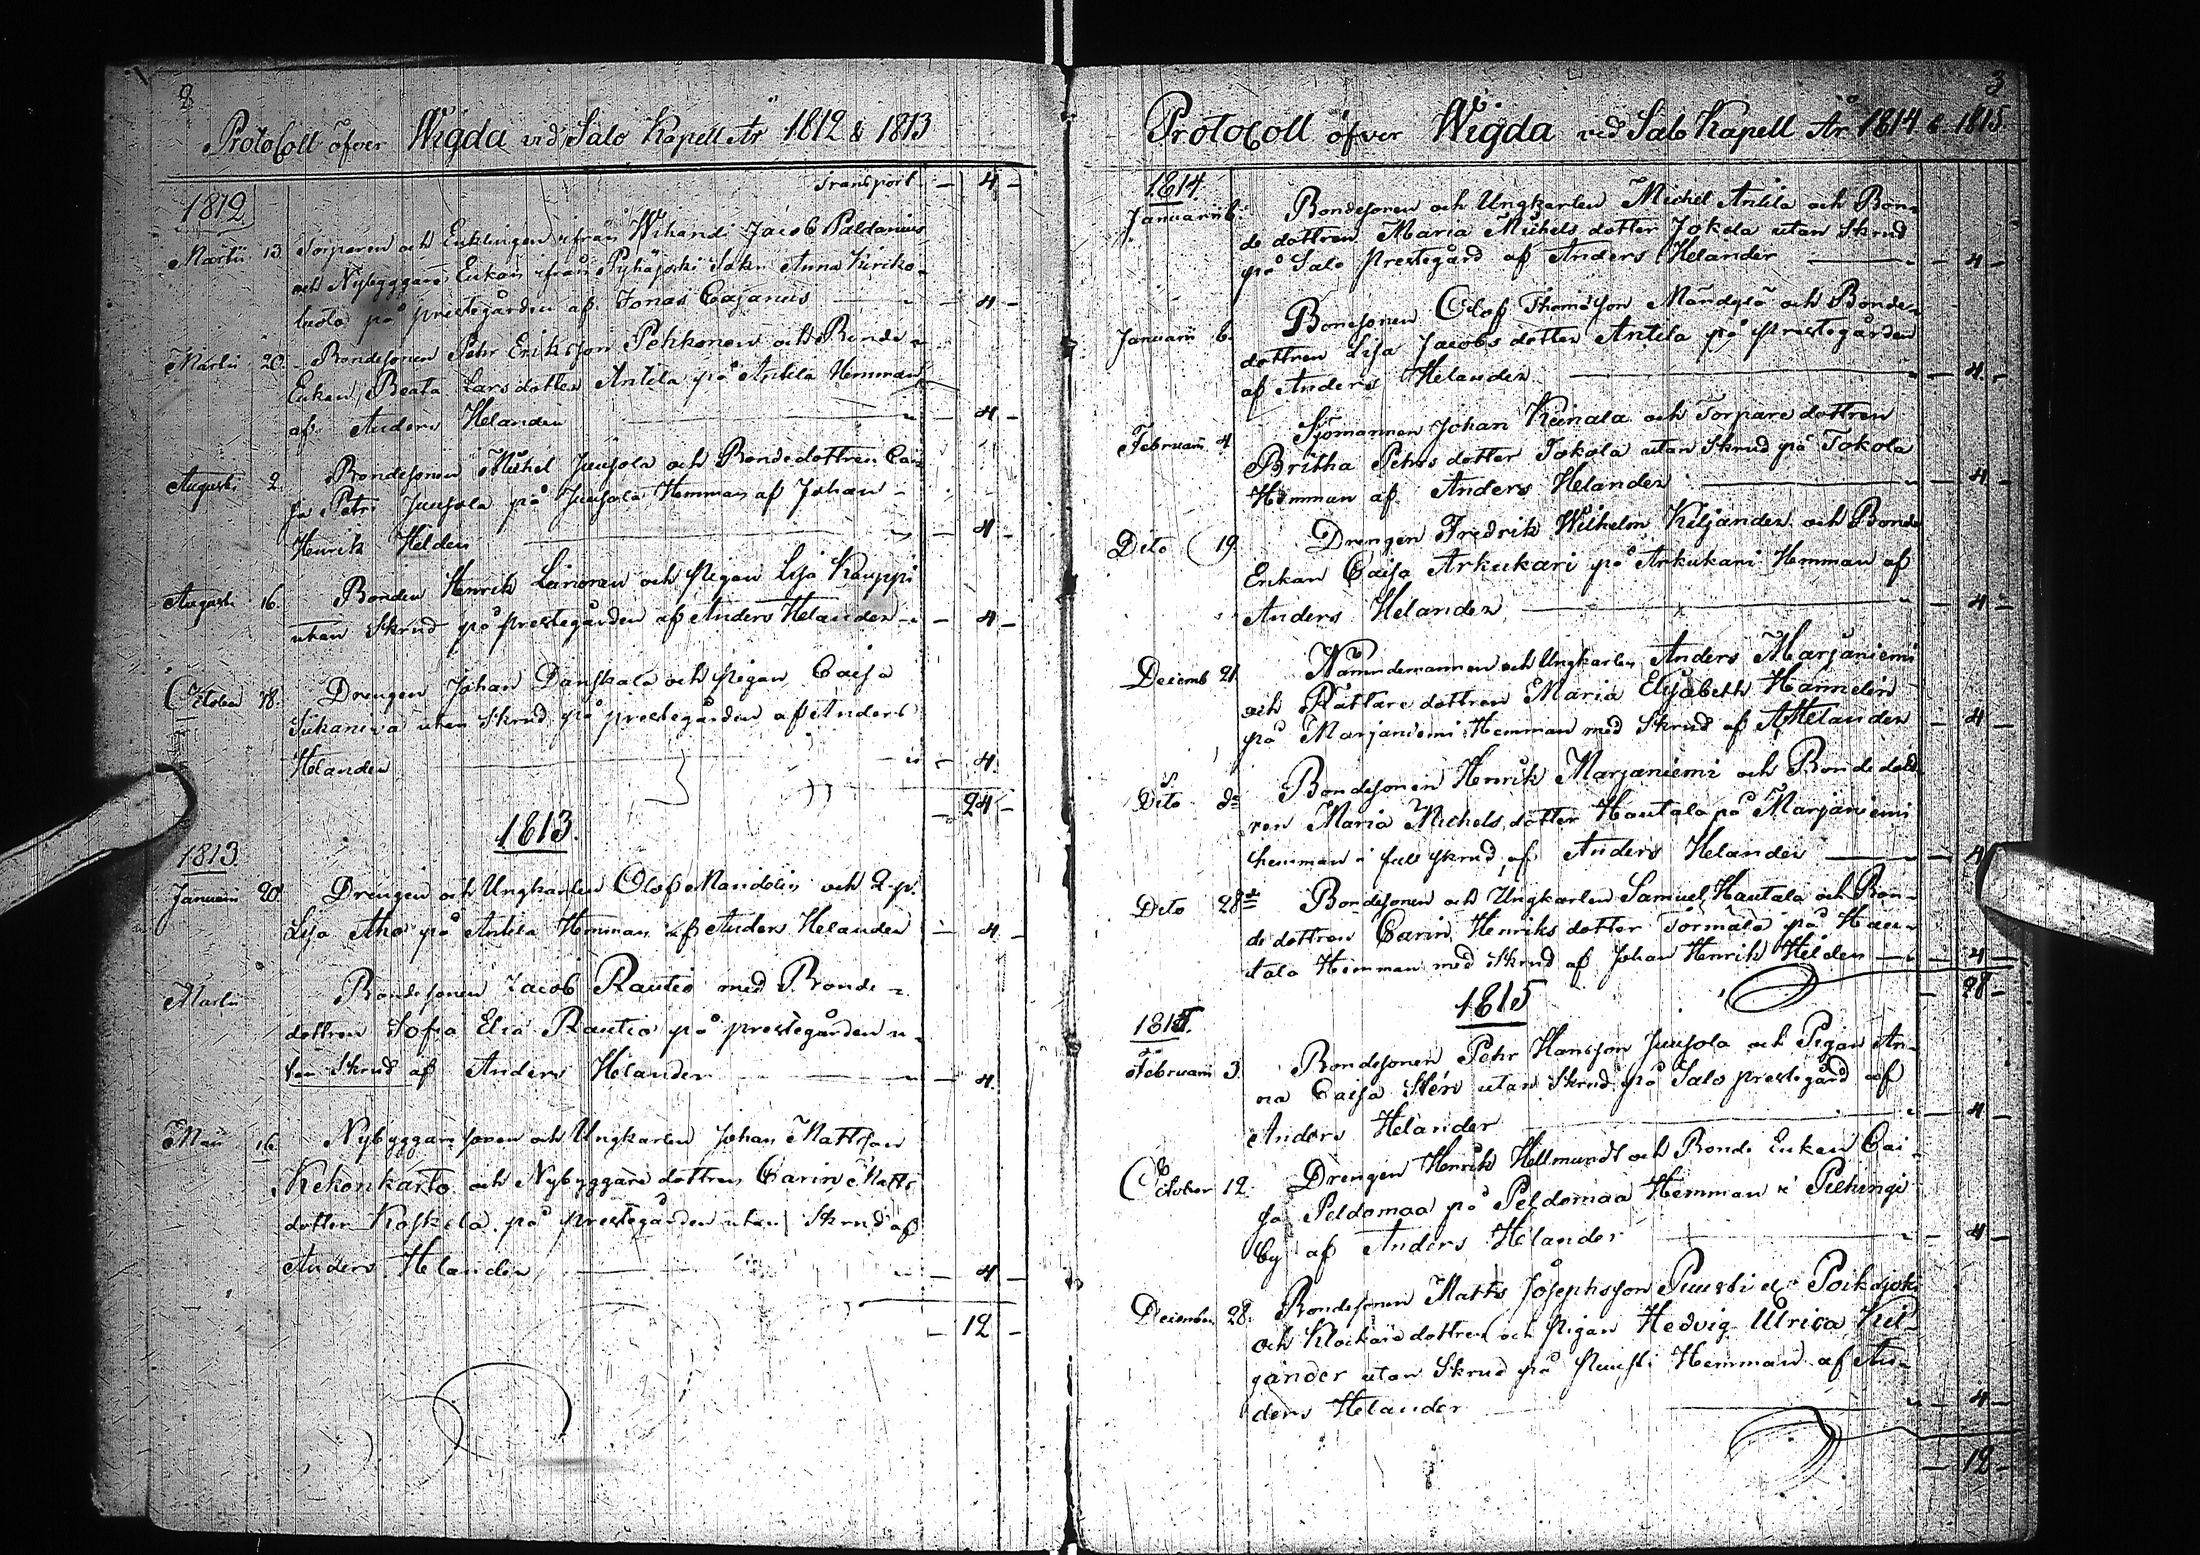 2
Protocoll öfver Wigda vid Salo Kapell År 1812 & 1813
Transport - 4 -
1812
Martii 13. Torparen och Enklingen ifrån Wihandi Jacob Paldanius
och Nybyggare Enkan ifrån Pyhäjocki Sokn Anna Kiriko-
luoto på prestegården af Jonas Cajanus - 4 -
Martii 20. Bondesonen Pehr Eriksson Pehkonen och Bonde-
Enkan Beata Larsdotter Antila på Antila Hemman
af Anders Helander - 4 -
Augusti 2. Bondesonen Michel Juusola och Bondedottren Cai-
sa Petri Juusola på Juusola Hemman af Johan
Henrik Helden - 4 -
Augusti 16. Bonden Henrik Leinonen och Pigan Lisa Kauppi
utan Skrud på prestegården af Anders Helander - 4 -
October 18. Drengen Johan Danskala och Pigan Caisa
Siikaneva utan Skrud på prestegården af Anders
Helander - 4.
- 24 -
1813.
1813
Januarii 20. Drengen och Ungkarlen Olof Mandelin och Q.p.
Lisa Aho på Antila Hemman af Anders Helander - 4 -
Martii Bondesonen Jacob Rautio med Bonde-
dottren Sofia Elia Rautio på prestegården u-
tan Skrud af Anders Helander - 4.
Maii 16. Nybyggare sonen och Ungkarlen Johan Mattsson
Kekonkarto och Nybyggare dottren Carin Matts
dotter Koskela på prestegården utan Skrud af
Anders Helander - 4 -
- 12 -
3
Protocoll öfver Wigda vid Salo Kapell År 1814 & 1815.
1814
Januarii 6. Bondesonen och Ungkarlen Michel Antila och Bon-
de dottren Maria Michels dotter Jokela utan Skrud
på Salo Prestegård af Anders Helander - 4 -
Januarii 6. Bondesonen Olof Thomasson och Bonde-
dottren Lisa Jacobs dotter Antila på prestegården
af Anders Helander - 4 -
Februarii 4. Sjömannen Johan Keinala och Torpare dottren
Britha Pehrs dotter Tokola utan Skrud på Tokola
Hemman af Anders Helander - 4 -
Dito 19. Drengen Fredrik Wilhelm Kiljander och Bonde
Enkan Caisa Arkukari på Arkukari Hemman af
Anders Helander - 4 -
Decemb 21. Nämndemannen och Ungkarlen Anders Marjaniemi
och Rättare dottren Maria Elisabeth Hannelin
på Marjaniemi Hemman med Skrud af A Helander - 4 -
Dito do Bondesonen Henrik Marjaniemi och Bonde dott
ren Maria Michels dotter Hautala på Marjaniemi
hemman i full skrud af Anders Helander - 4
Dito 28de Bondesonen och Ungkarlen Samuel Hautala och Bon-
de dottren Carin Henriks dotter Törmälä på Hau-
tala Hemman med Skrud af Johan Henrik Helden - 4 -
- 28 -
1815
1815.
Februarii 3. Bondesonen Pehr Hansson Juusola och Pigan An-
na Caisa Stén utan Skrud på Salo prestegård af
Anders Helander - 4 -
October 12. Drengen Henrik Hellmundt och Bonde Enkan Cai-
sa Peldomaa på Peldomaa Hemman i Piehingi
by af Anders Helander - 4 -
December 28. Bondesonen Matts Josephsson Puusti
och Klockare dottren och Pigan Hedvig Ulrica Kil-
jander utan Skrud på Puusti Hemman af An-
ders Helander - 4 -
- 12 -